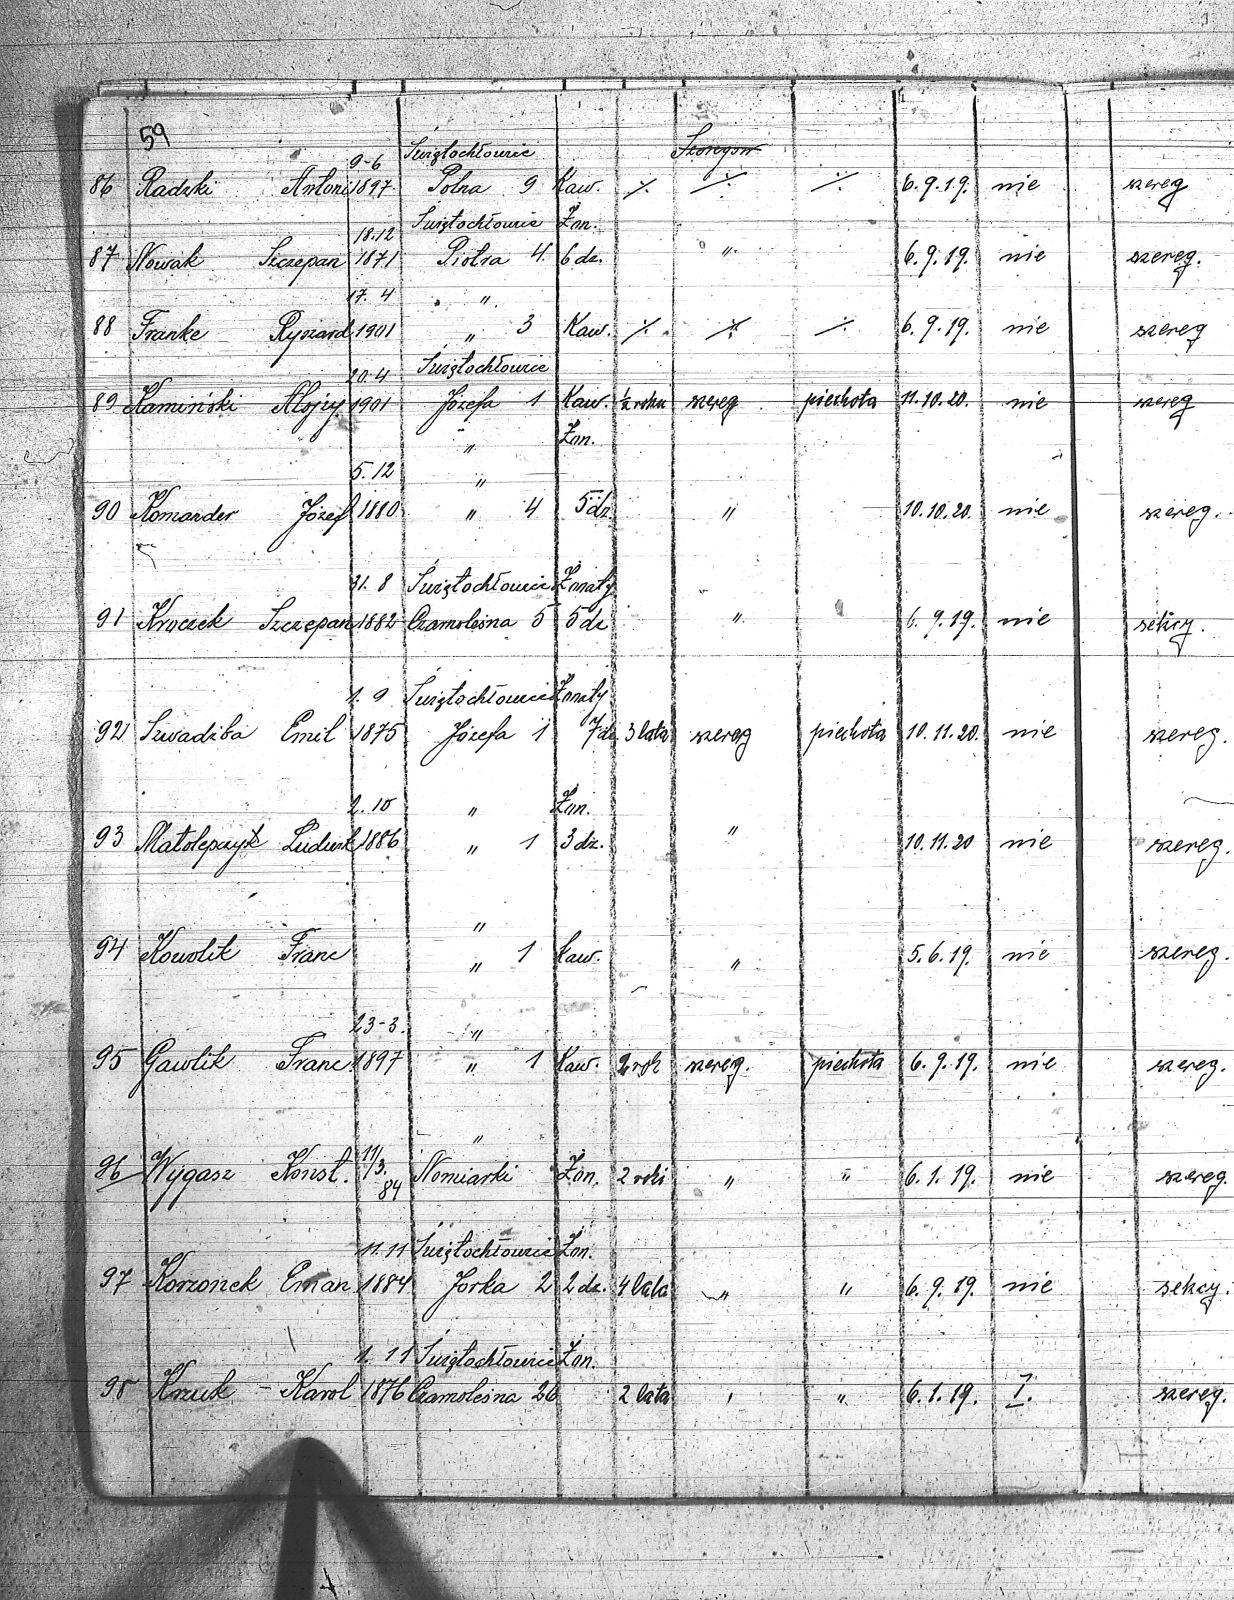 59
9-6 Świętochłowice Szeregow
86 Radzki Antoni 1897 Polna 9 Kaw. ⁒ ⁒ ⁒ 6.9.19. nie szereg
18.12 Świętochłowice Żon.
87 Nowak Szczepan 1871 Piotra 4 6 dz. " 6.9.19. nie szereg.
17.4 "
88 Franke Ryszard 1901 " 3 Kaw. ⁒ ⁒ ⁒ 6.9.19. nie szereg
20.4 Świętochłowice
89 Kamiński Alojzy 1901 Józefa 1 Kaw. ½ roku szereg piechota 11.10.20. nie szereg
" Żon.
5.12 "
90 Komander Józef 1880 " 4 5 dz " 10.10.20. nie szereg.
31.8 Świętochłowice Żonaty
91 Kroczek Szczepan 1882 Czarnoleśna 5 5 dz " 6.9.19. nie sekcy.
1.9 Świętochłowice Żonaty
92 Szwadźba Emil 1875 Józefa 1 7 dz 3 lata szereg piechota 10.11.20. nie szereg.
2.10 " Żon.
93 Małolepszy 1886 " 1 3 dz. " 10.11.20 nie szereg.
"
94 Kowolik Franc " 1 Kaw. " 5.6.19. nie szereg.
23-3. "
95 Gawlik Franc 1897 " 1 Kaw. 2 rok szereg. piechota 6.9.19. nie szereg.
"
96 Wygasz Konst. 11/3. 84 Nomiarki Żon. 2 roki " " 6.1.19. nie szereg.
11.11 Świętochłowice Żon.
97 Korzonek Eman 1884 Jorka 2 2 dz. 4 lata " " 6.9.19. nie sekcy.
1.11 Świętochłowice Żon.
98 Kruk - Karol 1876 Czarnoleśna 26 2 lata " " 6.1.19. I. szereg.